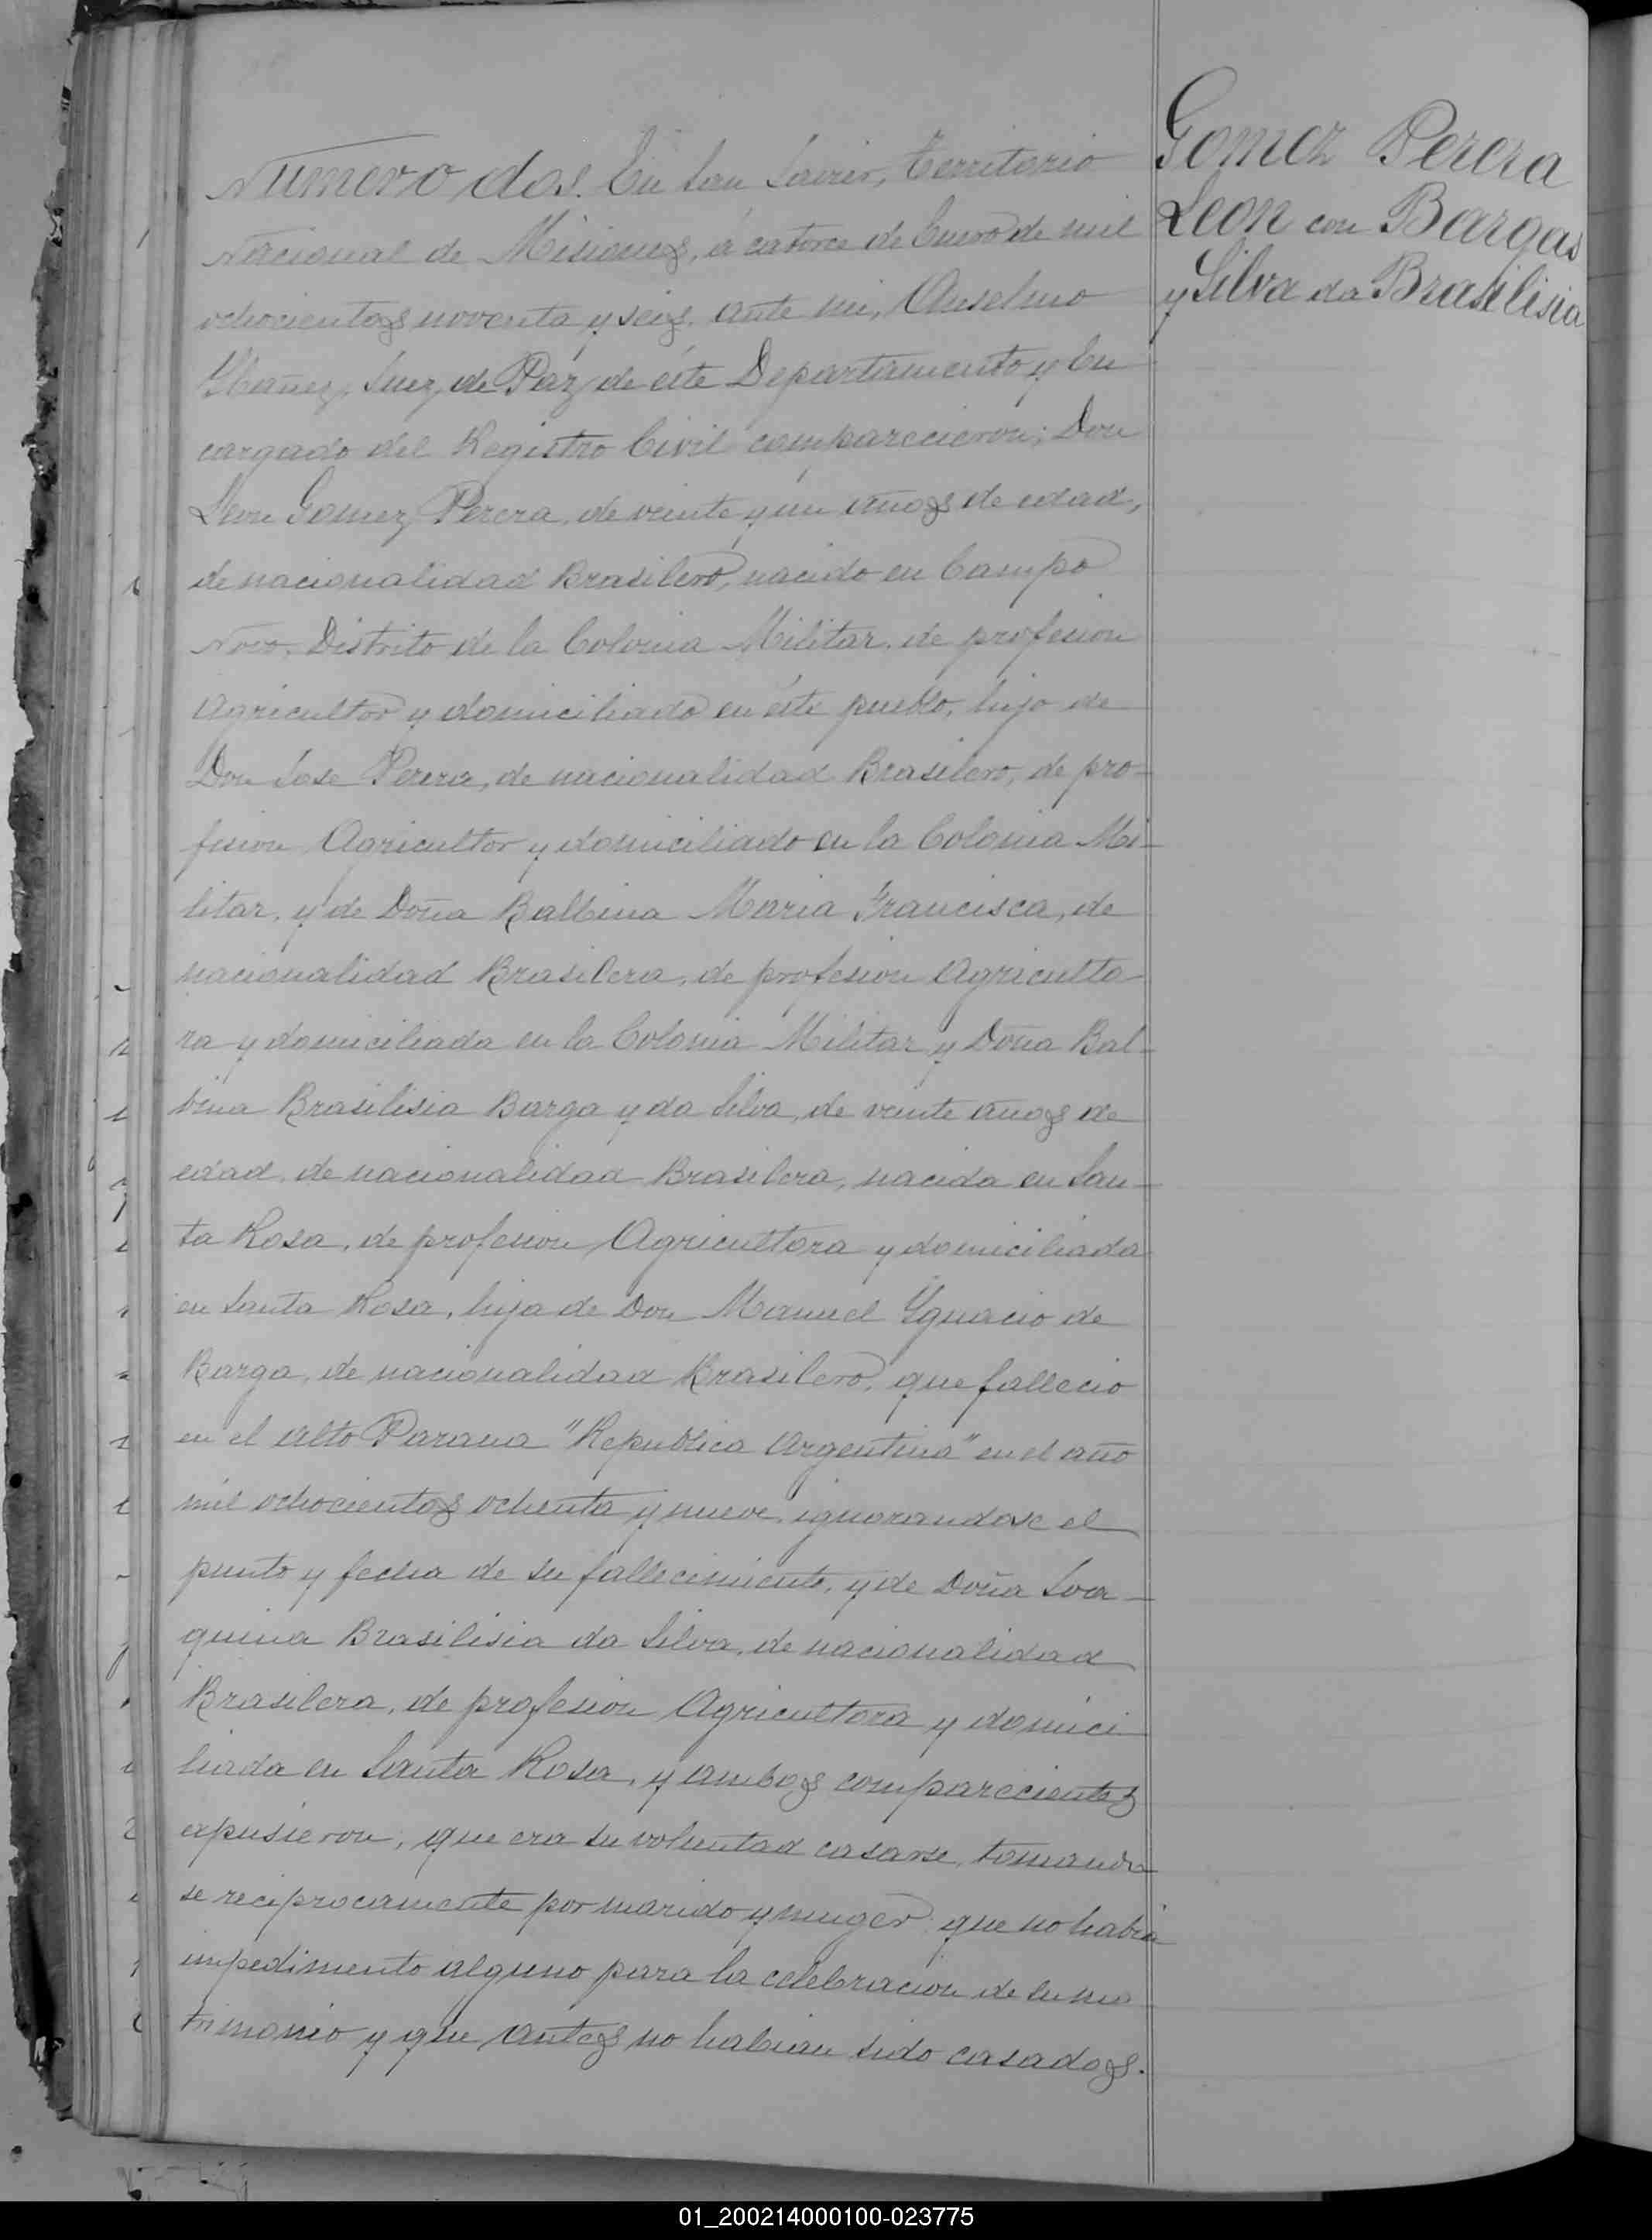 Numero dos. En San Javier, Territorio
Nacional de Misiones, á catorce de Enero de mil
ochocientos noventa y seis, ante mi, Anselmo
Ybañez, Juez de Paz de éste Departamento y En
cargado del Registro Civil comparecieron; Don
Leon Gomez Perera, de veinte y un años de edad,
de nacionalidad Brasilero, nacido en Campo
Novo, Distrito de la Colonia Militar, de profesion
Agricultor y domiciliado en éste pueblo, hijo de
Don Jose Perera, de nacionalidad Brasilero, de pro-
fesion Agricultor y domiciliado en la Colonia Mi-
litar, y de Doña Balbina Maria Francisca, de
nacionalidad Brasilera, de profesion Agriculto-
ra y domiciliada en la Colonia Militar y Doña Bal-
bina Brasilisia Barga y da Silva, de veinte años de
edad, de nacionalidad Brasilera, nacida en San-
ta Rosa, de profesion Agricultora y domiciliada
en Santa Rosa, hija de Don Manuel Ygnacio de
Barga, de nacionalidad Brasilero, que fallecio
en el Alto Parana "Republica Argentina" en el año
mil ochocientos ochenta y nueve, ignorandose el
punto y fecha de su fallecimiento, y de Doña Joa-
quina Brasilisia da Silva, de nacionalidad
Brasilera, de profesion Agricultora y domici
liada en Santa Rosa, y ambos comparecientes
expusieron; que era su voluntad casarse, tomando
se reciprocamente por marido y muger; que no habia
impedimento alguno para la celebracion de su ma
trimonio y que antes no habian sido casados.
Gomez Perera
Leon con Bargas
y Silva da Brasilisia
01_200214000100-023775